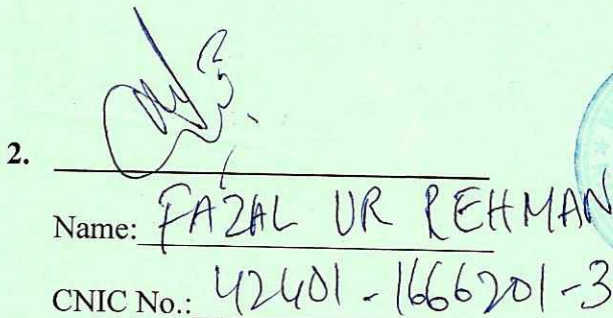 2.
Name: FAZAL UR REHMAN
CNIC No.: 42401-1666201-3